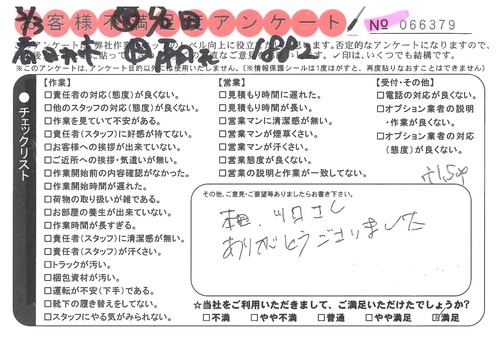 お客様不満足度アンケート
No 066379
このアンケートは弊社作業
レベル向上に役立
います。否定的なアンケートになりますので、
直なご意見をお
します。✓印は、いくつでも結構です。
※このアンケートは、アンケート目的以外に使用いたしません。(※情報保護シールは1度はがすと、再度貼りなおすことはできません)
チェックリスト
【作業】
□責任者の対応(態度)が良くない。
□他のスタッフの対応(態度)が良くない。
□作業を見ていて不安がある。
□責任者(スタッフ)に好感が持てない。
□お客様への挨拶が出来ていない。
□ご近所への挨拶・気遣いが無い。
□作業開始前の内容確認がなかった。
□作業開始時間が遅れた。
□荷物の取り扱いが雑である。
□お部屋の養生が出来ていない。
□作業時間が長すぎる。
□責任者(スタッフ)に清潔感が無い。
□責任者(スタッフ)が汗くさい。
□トラックが汚い。
□梱包資材が汚い。
□運転が不安(下手)である。
□靴下の履き替えをしてない。
□スタッフにやる気がみられない。
【営業】
□見積もり時間に遅れた。
□見積もり時間が長い。
□営業マンに清潔感が無い。
□営業マンが煙草くさい。
□営業マンが汗くさい。
□営業態度が良くない。
□営業の説明と作業が一致してない。
【受付・その他】
□電話の対応が良くない。
□オプション業者の説明
・作業が良くない。
□オプション業者の対応
(態度)が良くない。
その他、ご意見・ご要望等ありましたらお書き下さい。
ありがとうございました
☆当社をご利用いただきまして、ご満足いただけたでしょうか?
□不満 □やや不満 □普通 □やや満足 ☑満足